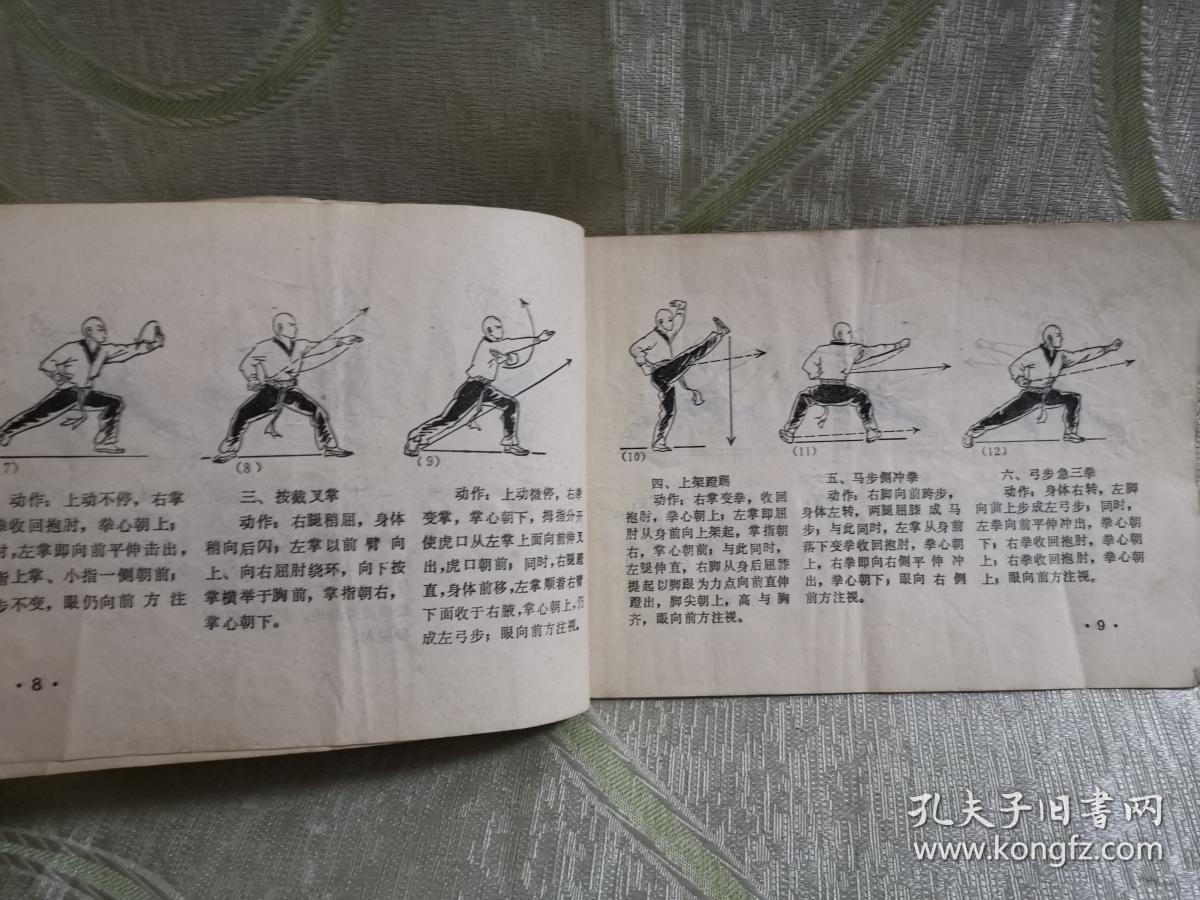 7)
动作：上动不停，右掌
拳收回抱肘，拳心朝上；
时，左掌即向前平伸击出，
指上掌、小指一侧朝前；
步不变，眼仍向前方注
·8·
(8)
三、按截叉掌
动作：右腿稍屈，身体
稍向后闪；左掌以前臂向
上、向右屈肘绕环，向下按
掌横举于胸前，掌指朝右，
掌心朝下。
(9)
动作：上动微停，右拳
变掌，掌心朝下，拇指分开
使虎口从左掌上面向前伸叉
出，虎口朝前；同时，右腿蹬
直，身体前移，左掌顺着右臂
下面收于右腋，掌心朝上，仍
成左弓步；眼向前方注视。
(10)
四、上架蹬踢
动作：右掌变拳，收回
抱肘，拳心朝上；左掌即屈
肘从身前向上架起，掌指朝
右，掌心朝前；与此同时，
左腿伸直，右脚从身后屈膝
提起以脚跟为力点向前直伸
蹬出，脚尖朝上，高与胸
齐，眼向前方注视。
(11)
五、马步侧冲拳
动作：右脚向前跨步，
身体左转，两腿屈膝成马
步；与此同时，左掌从身前
落下变拳收回抱肘，拳心朝
上，右拳即向右侧平伸冲
出，拳心朝下；眼向右侧
前方注视。
(12)
六、弓步急三拳
动作：身体右转，左脚
向前上步成左弓步；同时，
左拳向前平伸冲出，拳心朝
下；右拳收回抱肘，拳心朝
上；眼向前方注视。
·9·
孔夫子旧书网
www.kongfz.com